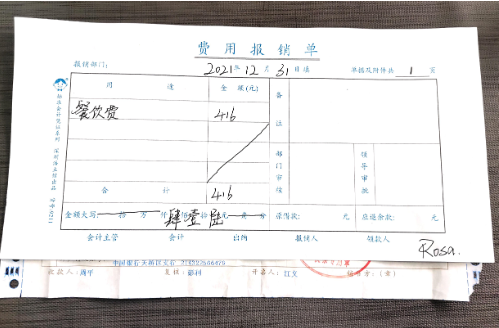 费用报销单
报销部门: 2021年12月31日填 单据及附件共 1 页
用途 金额(元) 备注
餐饮费 416
部门审核 领导审批
合计 416
金额大写: 拾 万 仟 肆佰 壹拾 陆元 角 分 原借款: 元 应退余款: 元
会计主管 会计 出纳 报销人 领款人
Rosa.
收款人: 周平 复核: 彭科 开票人: 江文 销售方:(章)